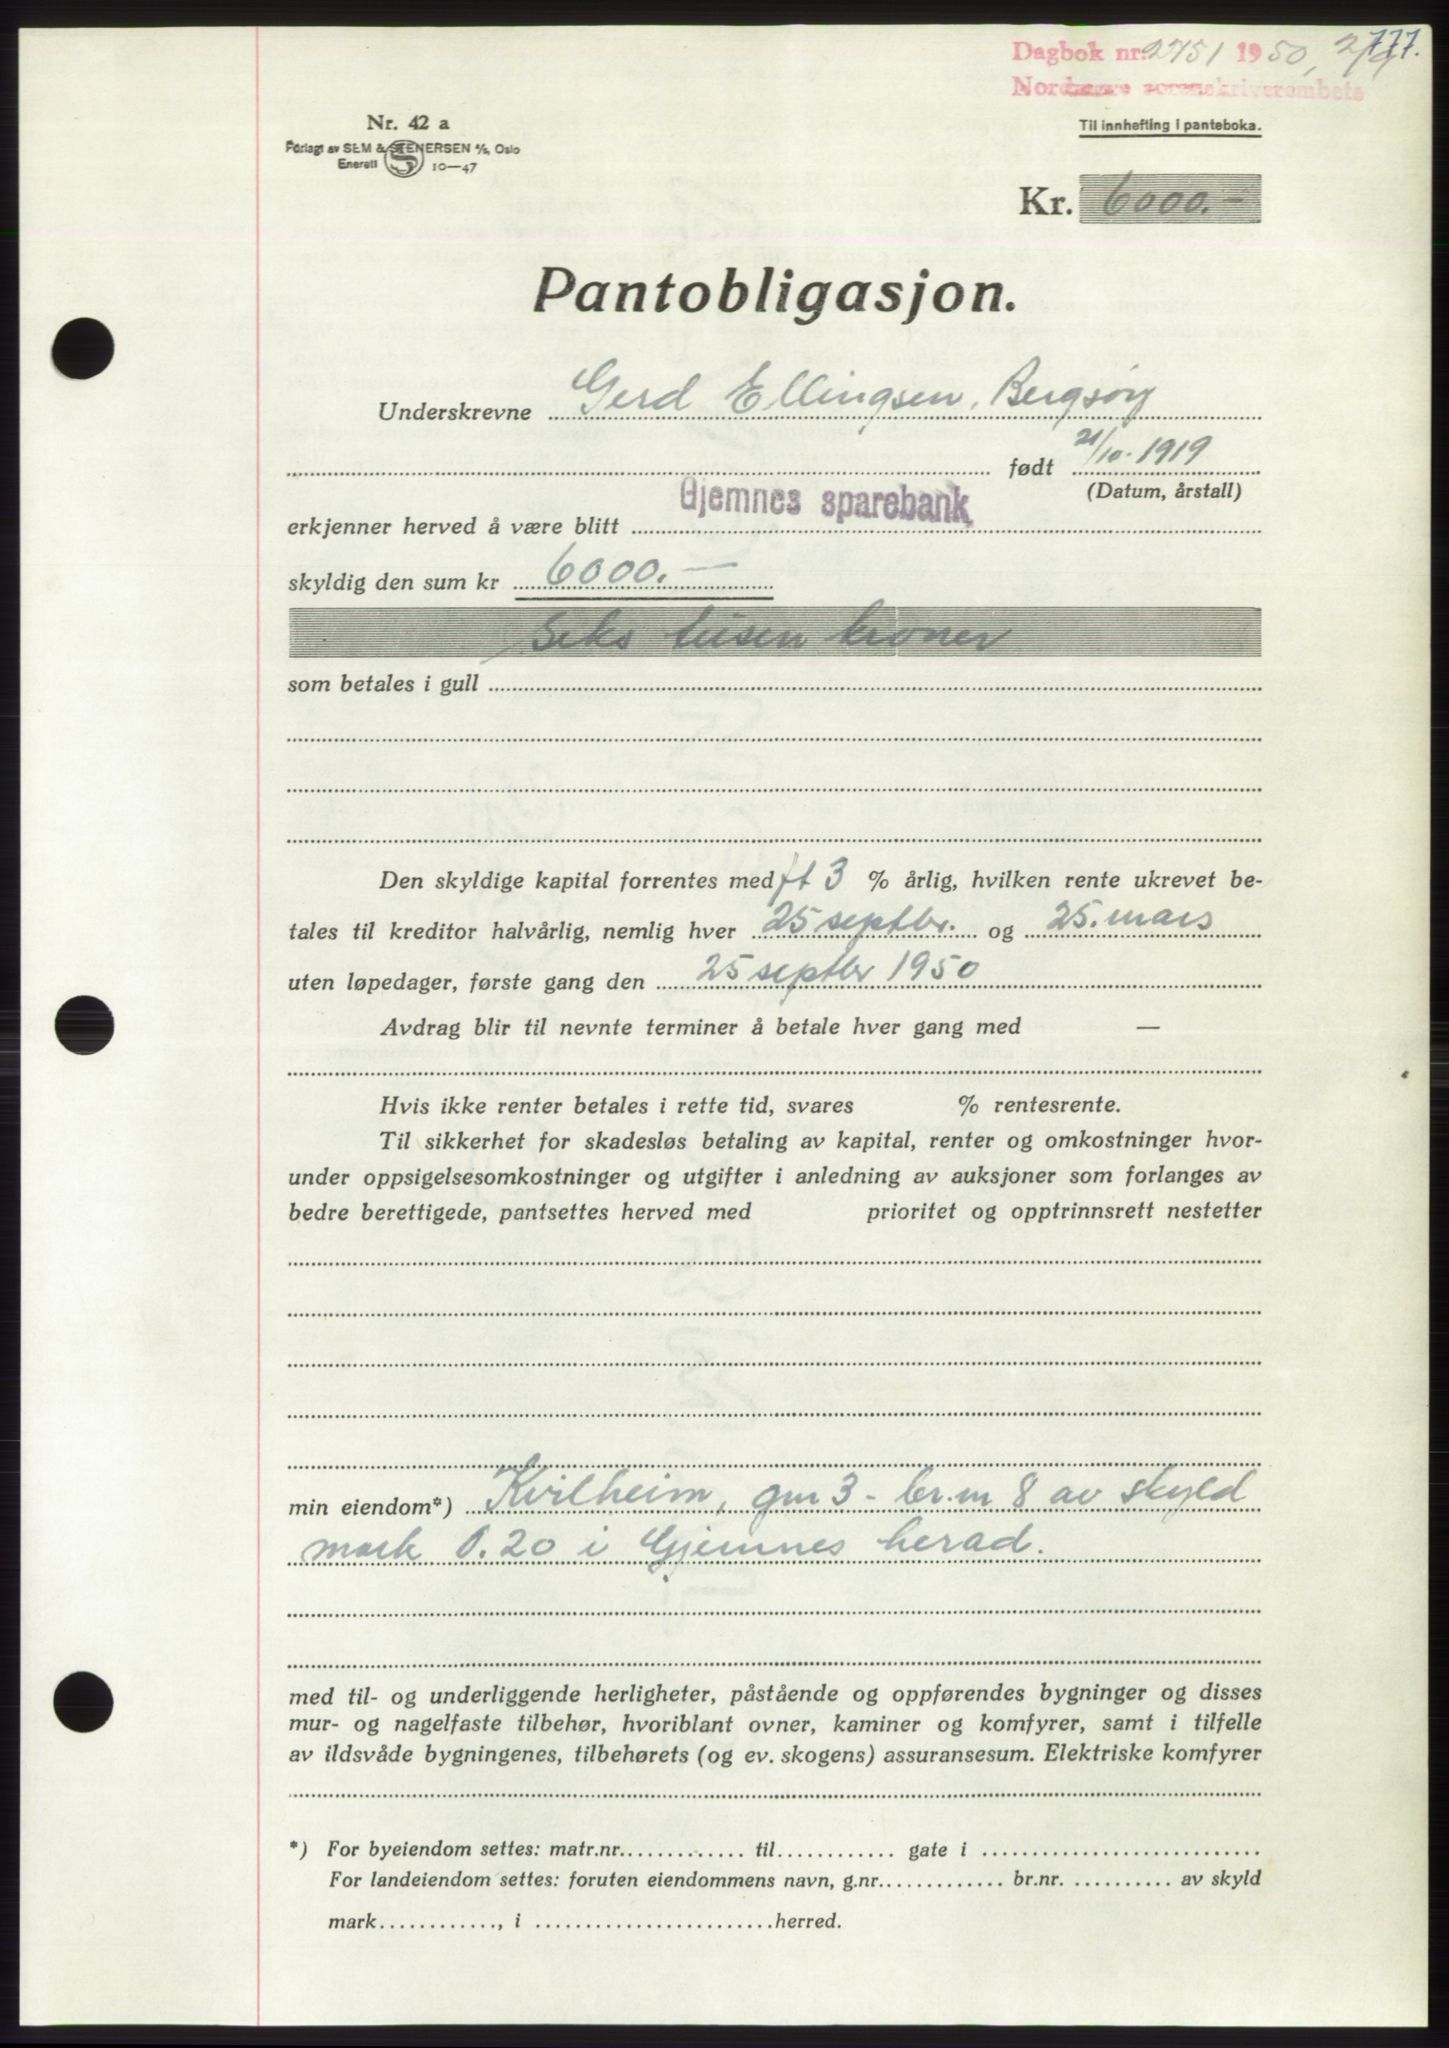 777.
Dagbok nr. 2751 1950, 2/9
Nordmøre sorenskriverembete
Nr. 42 a
Til innhefting i panteboka.
Forlagt av SEM & STENERSEN A/S, Oslo
Enerett S 10—47
Kr. 6000.—
Pantobligasjon.
Underskrevne Gerd Ellingsen, Bergsøy
født 21/10-1919
(Datum, årstall)
erkjenner herved å være blitt Gjemnes sparebank
skyldig den sum kr 6000.—
Seks tusen kroner
som betales i gull
Den skyldige kapital forrentes med ft 3 % årlig, hvilken rente ukrevet be-
tales til kreditor halvårlig, nemlig hver 25 septbr. og 25. mars
uten løpedager, første gang den 25 septbr 1950
Avdrag blir til nevnte terminer å betale hver gang med —
Hvis ikke renter betales i rette tid, svares % rentesrente.
Til sikkerhet for skadesløs betaling av kapital, renter og omkostninger hvor-
under oppsigelsesomkostninger og utgifter i anledning av auksjoner som forlanges av
bedre berettigede, pantsettes herved med prioritet og opptrinnsrett nestetter
min eiendom*) Kvilheim, gnr 3 - br.nr 8 av skyld
mark 0.20 i Gjemnes herad.
med til- og underliggende herligheter, påstående og oppførendes bygninger og disses
mur- og nagelfaste tilbehør, hvoriblant ovner, kaminer og komfyrer, samt i tilfelle
av ildsvåde bygningenes, tilbehørets (og ev. skogens) assuransesum. Elektriske komfyrer
*) For byeiendom settes: matr.nr. til gate i
For landeiendom settes: foruten eiendommens navn, g.nr. br.nr. av skyld
mark , i herred.